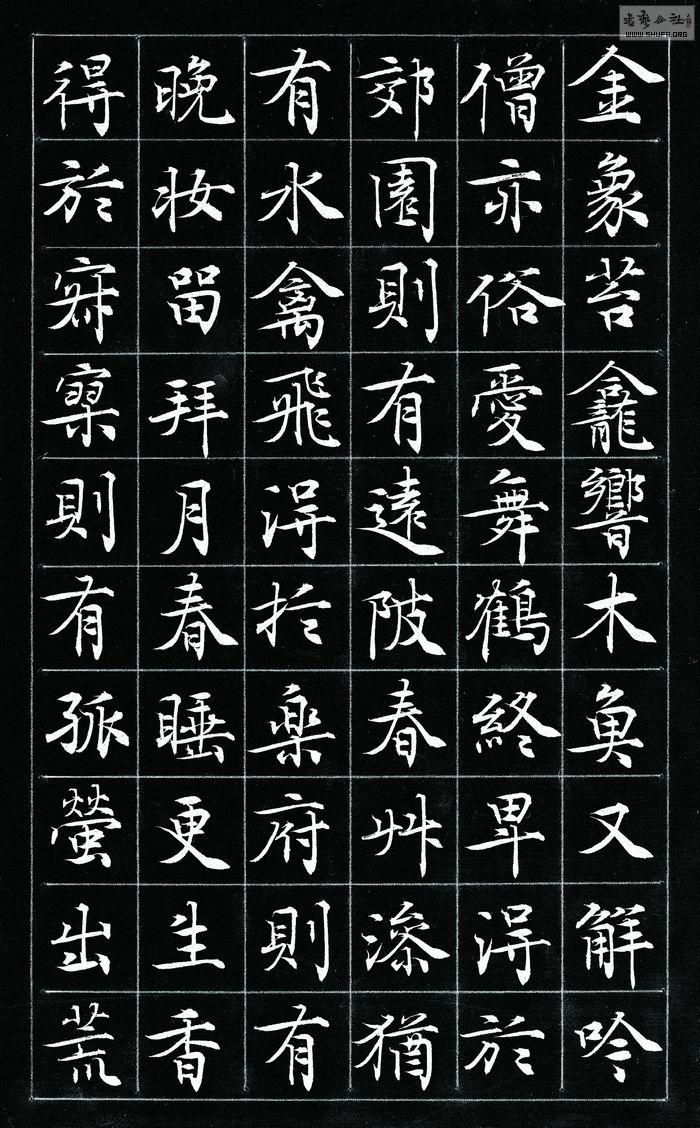 金象苔龕響木魚又解吟
僧亦俗愛舞鶴終卑淂於
郊園則有遠陂春艸深猶
有水禽飛淂扵樂府則有
晚妝留拜月春睡更生香
得於寂寞則有孤螢出荒
書藝公社
WWW.SHUFA.ORG